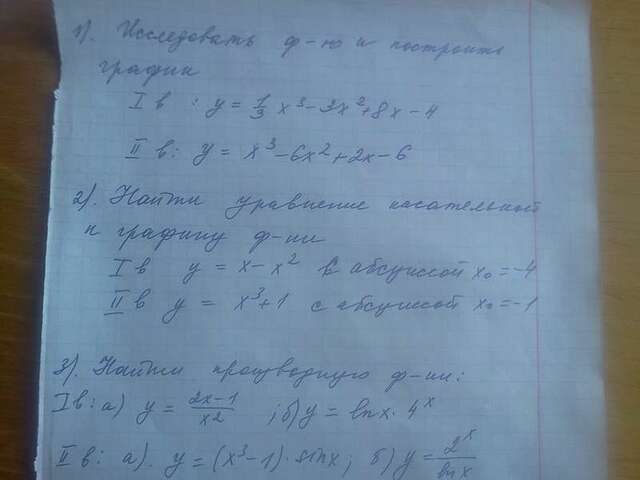 1). Исследовать ф-ю и построить
график
I в : y = 1/3 x³ - 3x² + 8x - 4
II в: y = x³ - 6x² + 2x - 6
2). Найти уравнение касательной
к графику ф-ии
I в y = x - x² с абсциссой x₀ = -4
II в y = x³ + 1 с абсциссой x₀ = -1
3). Найти производную ф-ии:
I в: а) y = (2x-1)/x² ; б) y = lnx · 4ˣ
II в: а). y = (x³ - 1) · sinx ; б) y = 2ˣ/lnx